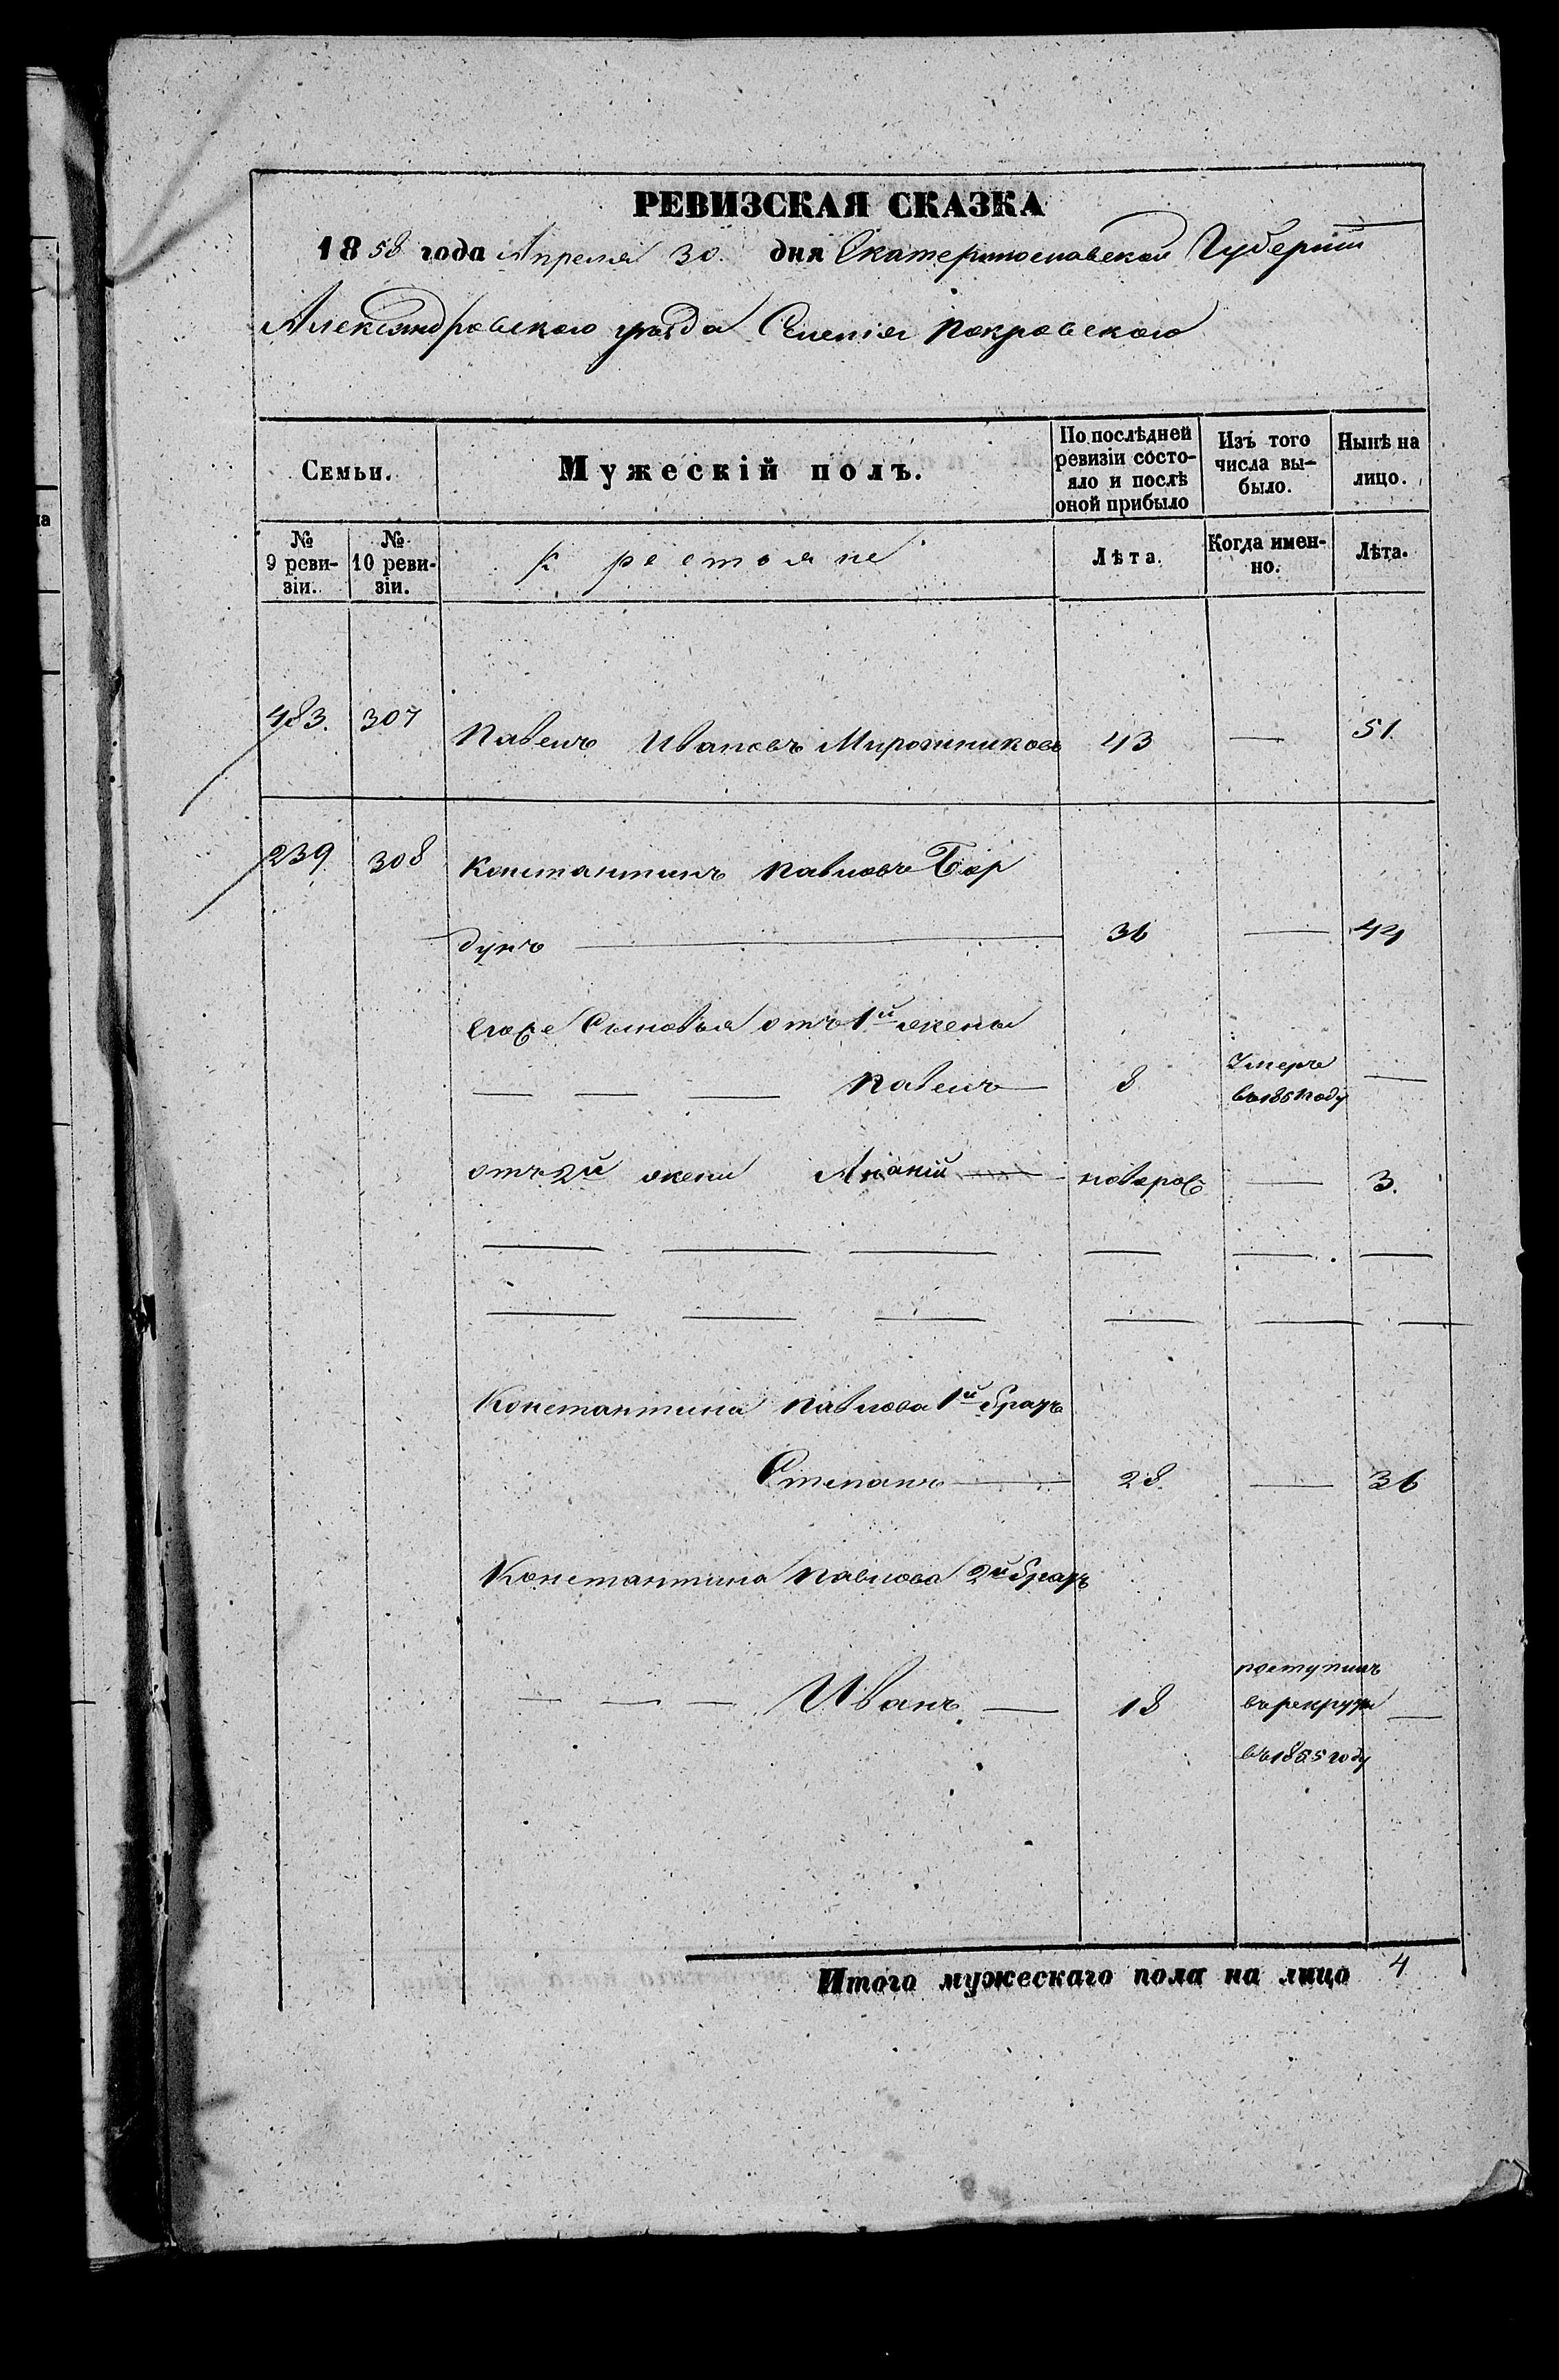 РЕВИЗСКАЯ СКАЗКА
1858 года Апреля 30. дня Екатеринославской Губерніи
Александровского уѣзда Селенія Покровского
Семьи.
Мужескій полъ.
По послѣдней ревизіи состо-
яло и послѣ
оной прибыло
Изъ того
числа вы-
было.
Нынѣ на
лицо.
№
9 реви-
зіи.
№
10 реви-
зіи.
Крестояне
Лѣта.
Когда имен-
но.
Лѣта.
483. 307 Павелъ Ивановъ Мирошниковъ 43 — 51.
239 308 Константинъ Павловъ Бор
дунъ — 36 — 44
Егоже Сыновья отъ 1й жены
— — — Павелъ — 8 Умеръ —
въ 1851 году
отъ 2й жены Ананій — новорож — 3.
— — — — — —
— — — — — —
Константина Павлова 1й братъ
Степанъ — 28. — 36
Константина Павлова 2й братъ
— — — Иванъ. — 18 поступилъ
въ рекруты —
въ 1855 году
Итого мужескаго пола на лицо 4